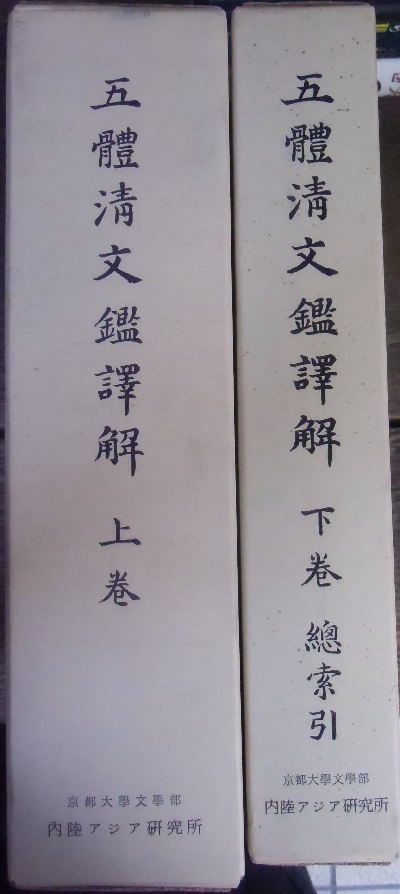 五體淸文鑑譯解 上卷
京都大學文學部
內陸アジア硏究所
五體淸文鑑譯解 下卷 總索引
京都大學文學部
內陸アジア硏究所